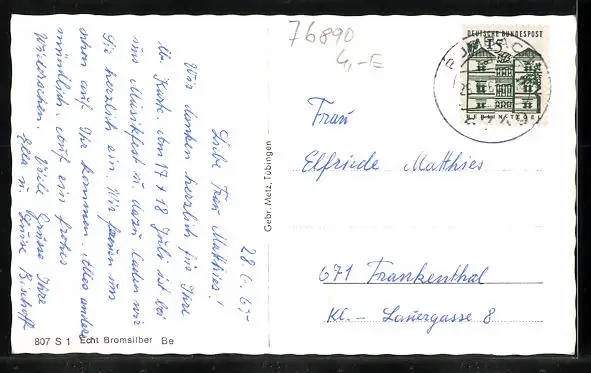 76890
4,-E
DEUTSCHE BUNDESPOST
15
BERLIN-TEGEL
28. 6. 65-
Liebe Frau Matthies!
Wir danken herzlich für Ihre
lb. Karte. Am 17 + 18 Juli ist bei
uns Musikfest u. dazu laden wir
Sie herzlich ein. Wir freuen uns
schon auf Ihr kommen. Alles andere
mündlich. Auf ein frohes
Wiedersehen. Viele Grüsse Ihre
u. Luise Bischoff
Gebr. Metz, Tübingen
Frau
Elfriede Matthies
671 Frankenthal
Kl.- Lauergasse 8
807 S 1 Echt Bromsilber Be